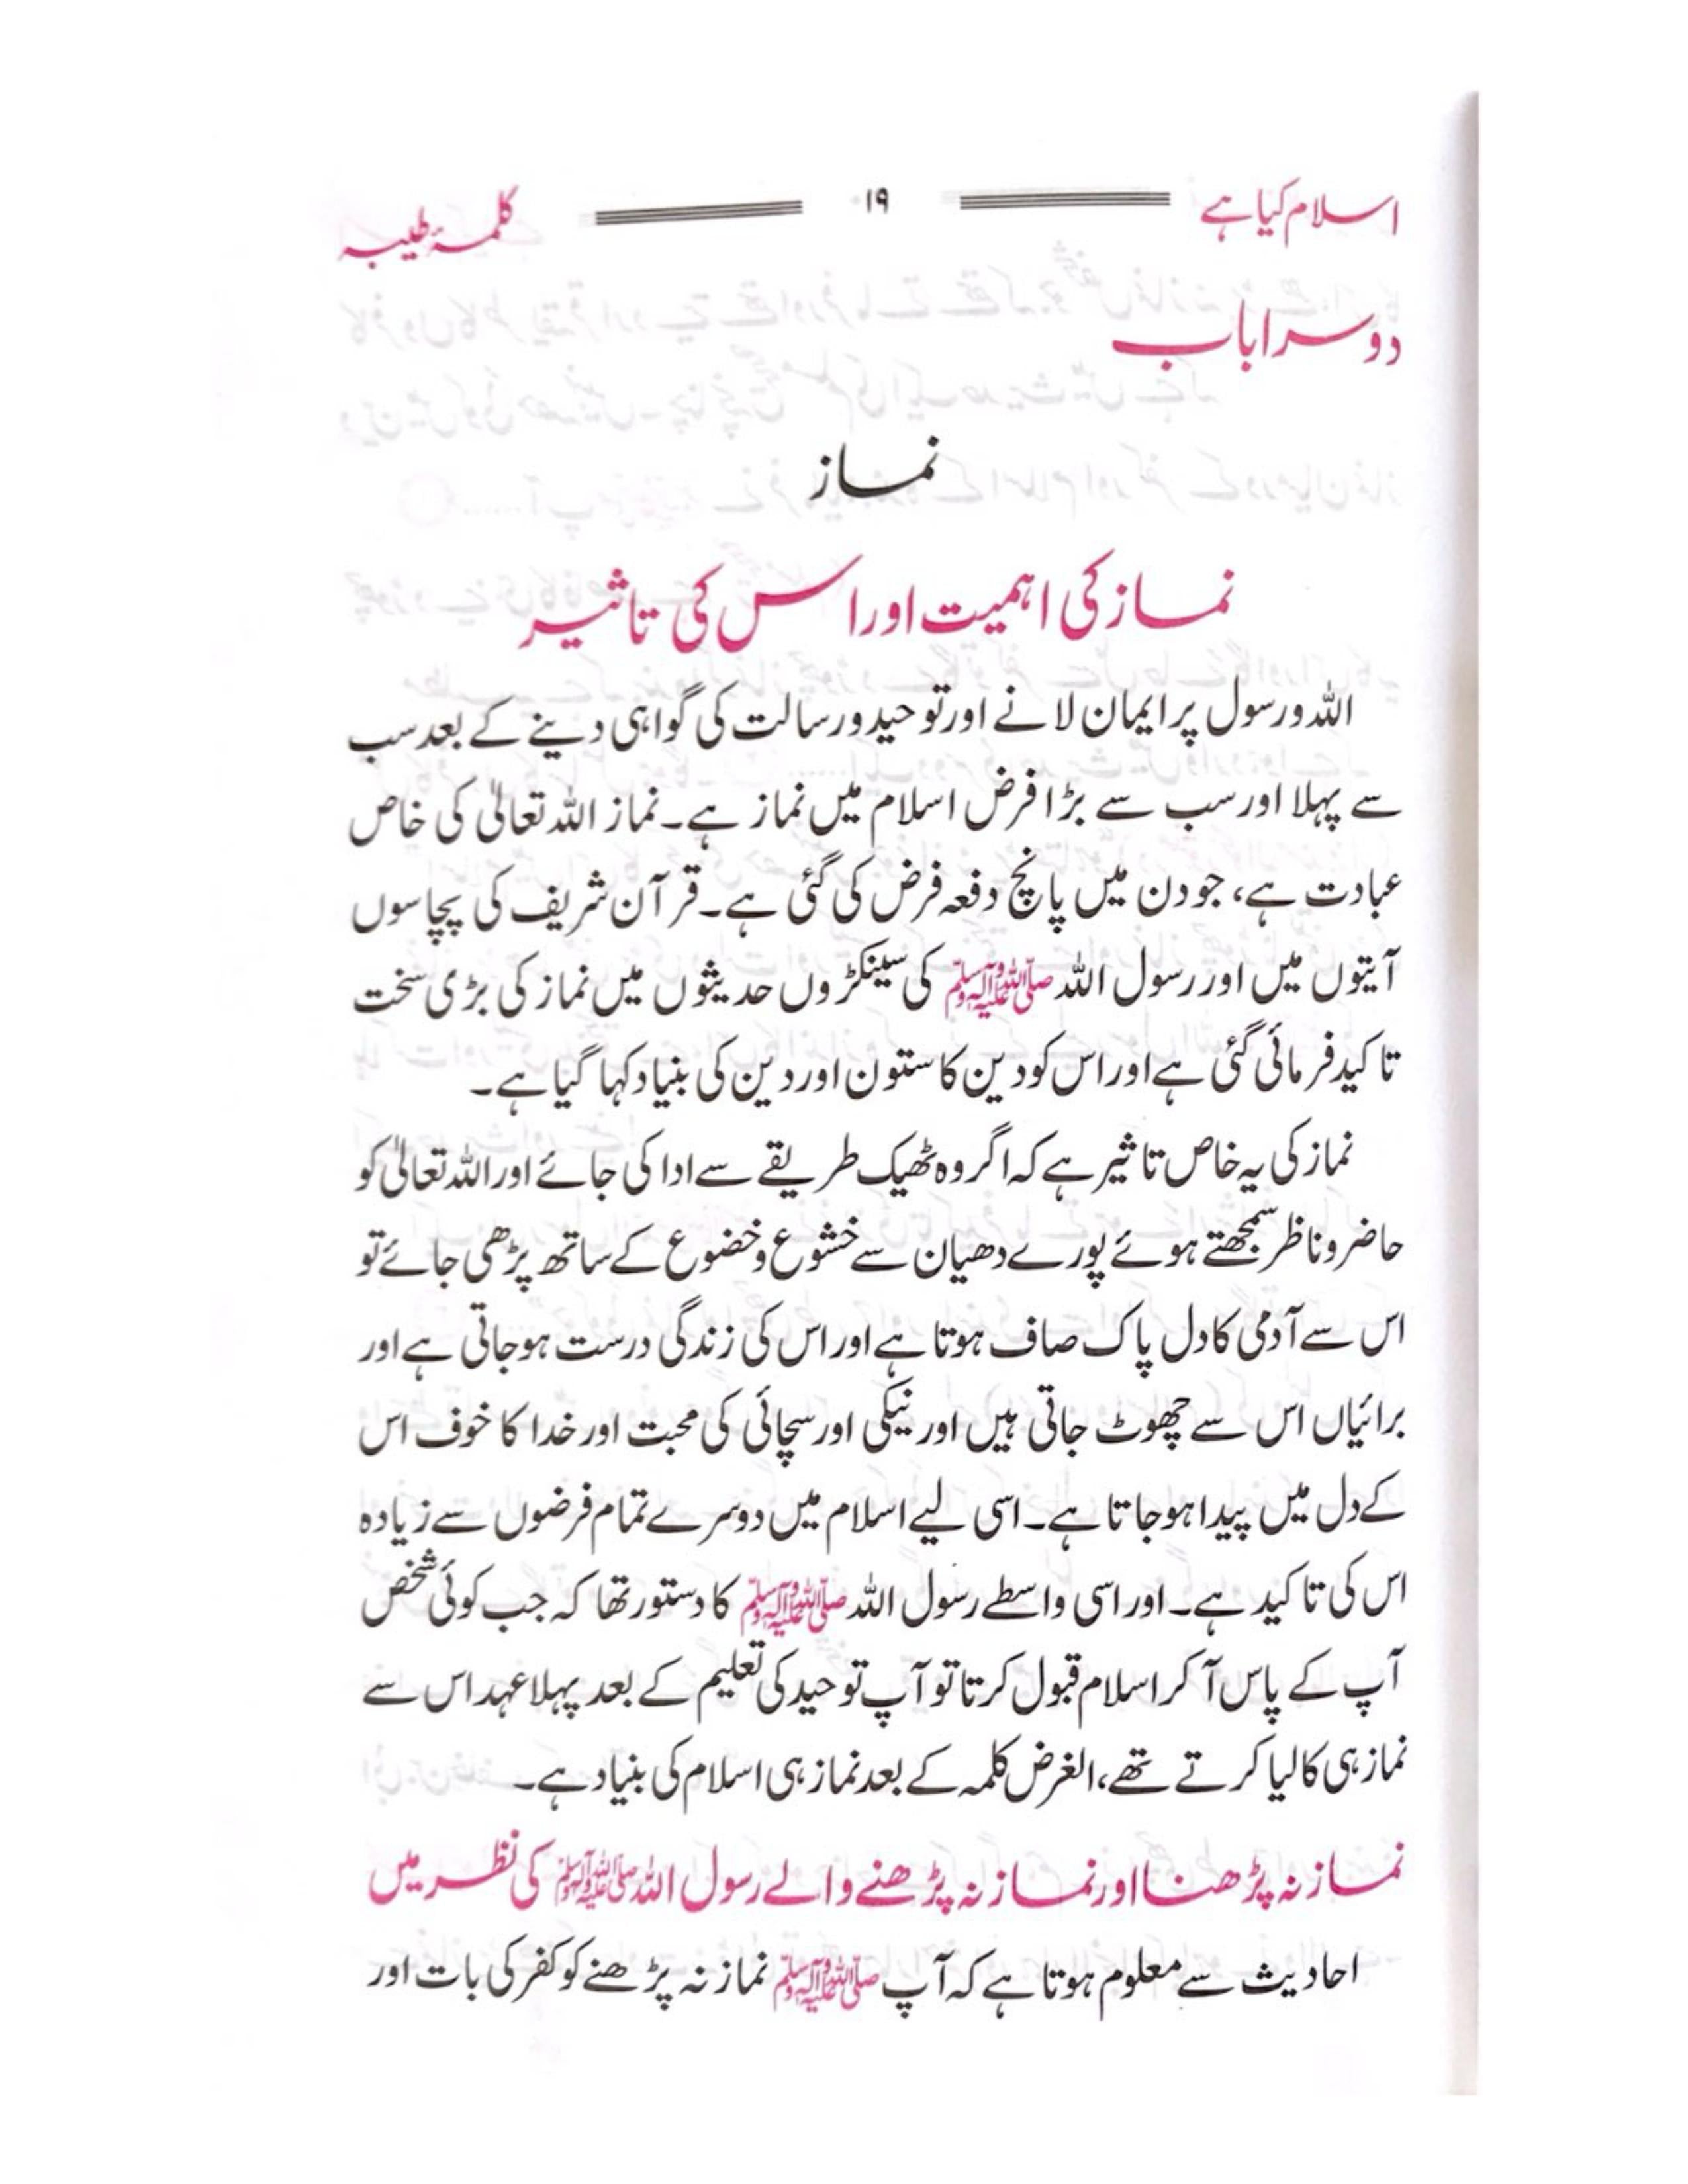 اسلام کیا ہے ۱۹ کلمۂ طیبہ
دوسرا باب
نماز
نماز کی اہمیت اور اس کی تاثیر
اللہ و رسول پر ایمان لانے اور توحید و رسالت کی گواہی دینے کے بعد سب
سے پہلا اور سب سے بڑا فرض اسلام میں نماز ہے۔ نماز اللہ تعالیٰ کی خاص
عبادت ہے، جو دن میں پانچ دفعہ فرض کی گئی ہے۔ قرآن شریف کی پچاسوں
آیتوں میں اور رسول اللہ ﷺ کی سینکڑوں حدیثوں میں نماز کی بڑی سخت
تاکید فرمائی گئی ہے اور اس کو دین کا ستون اور دین کی بنیاد کہا گیا ہے۔
نماز کی یہ خاص تاثیر ہے کہ اگر وہ ٹھیک طریقے سے ادا کی جائے اور اللہ تعالیٰ کو
حاضر و ناظر سمجھتے ہوئے پورے دھیان سے خشوع و خضوع کے ساتھ پڑھی جائے تو
اس سے آدمی کا دل پاک صاف ہوتا ہے اور اس کی زندگی درست ہو جاتی ہے اور
برائیاں اس سے چھوٹ جاتی ہیں اور نیکی اور سچائی کی محبت اور خدا کا خوف اس
کے دل میں پیدا ہو جاتا ہے۔ اسی لیے اسلام میں دوسرے تمام فرضوں سے زیادہ
اس کی تاکید ہے۔ اور اسی واسطے رسول اللہ ﷺ کا دستور تھا کہ جب کوئی شخص
آپ کے پاس آ کر اسلام قبول کرتا تو آپ توحید کی تعلیم کے بعد پہلا عہد اس سے
نماز ہی کا لیا کرتے تھے، الغرض کلمہ کے بعد نماز ہی اسلام کی بنیاد ہے۔
نماز نہ پڑھنا اور نماز نہ پڑھنے والے رسول اللہ ﷺ کی نظر میں
احادیث سے معلوم ہوتا ہے کہ آپ ﷺ نماز نہ پڑھنے کو کفر کی بات اور